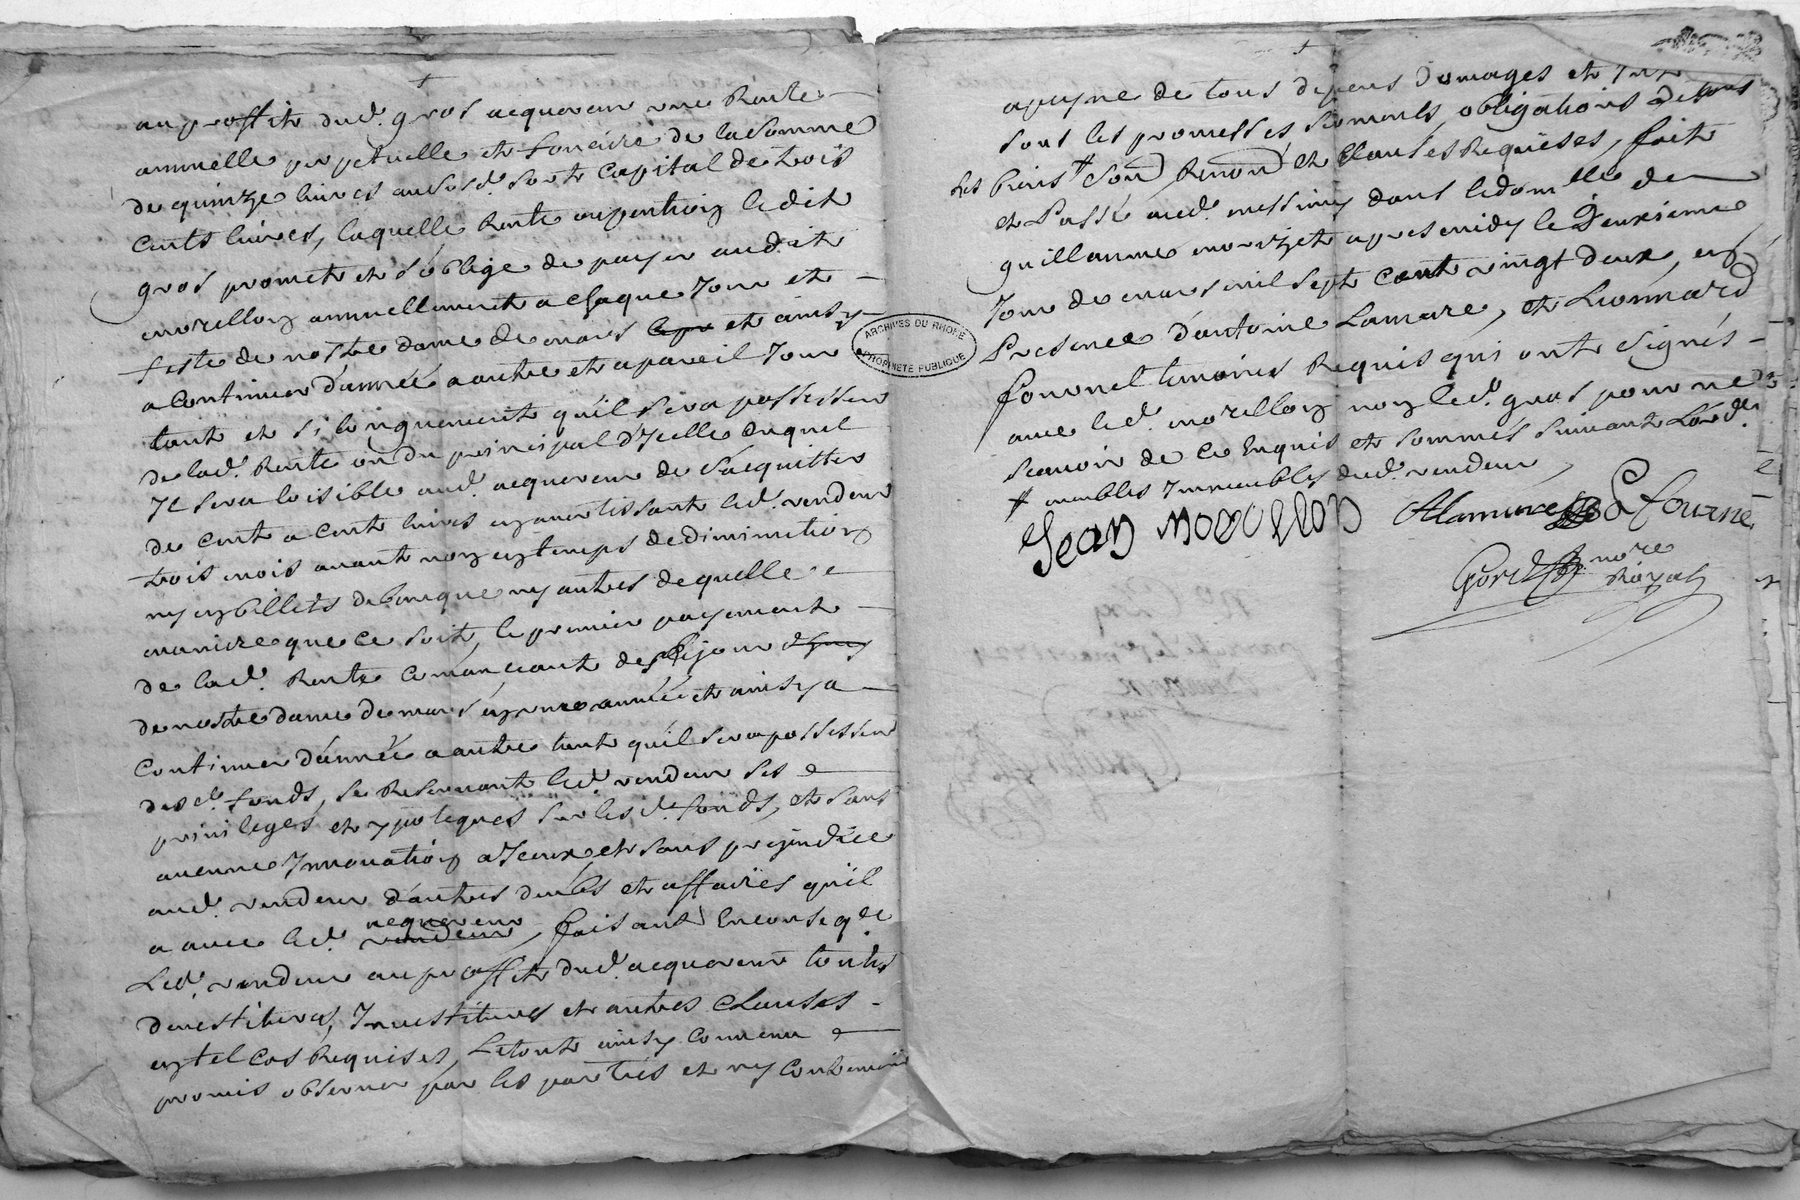 au proffit dud. gros acquereur une Rente
annuelle perpetuelle et fonciére de la somme
de quinze livres au susd. sort Capital de trois
Cents livres, laquelle Rente ou pention le dit
gros promet et s'oblige de payer audit
morellon annuellement a chaque Jour et
feste de nostre dame de mars et ainsy
a continuer d'année a autre et a pareil Jour
tant et si longuement qu'il sera possesseur
de lad. Rente ou du principal d'Jcelle duquel
Jl sera loisible aud. acquereur de s'acquitter
de cent a cent livres en avertissant led. vendeur
trois mois avant non en temps de diminution
ny en billets de banque ny autres de quelle
maniere que ce soit, le premier payement
de lad. Rente comancant des jour
de nostre dame de mars en une année et ainsy a
continuer d'année a autre tant qu'il sera possesseur
desd. fonds, se Reservant led. vendeur ses
privileges et ypoteques sur lesd. fonds, et sans
aucune Jnnovation a Jceux et sans prejudice
aud. vendeur d'autres deubs et affaires qu'il
a avec led. vendeur acquereur, faisant En conseq.ce
Led. vendeur au proffit dud. acquereur toutes
devestitures, Jnvestitures et autres clauses
en tel cas Requises, Le tout ainsy convenu
promis observer par les parties et ny contrevenir
ARCHIVES DU RHONE
PROPRIETE PUBLIQUE
a peyne de tous depens domages et
sous les promesses serments, obligations de tous
ses biens # Soub.on Renon.on et Clauses Requises, fait
et Passé aud. messimy dans le domille de
guillaume morizet apres midy le Deuxieme
Jour de mars mil sept cent vingt deux, en
Presence d'antoine Lamure, et Leonnard
fournel temoins Requis qui ont signés
avec led. morellon non led. gros pour ne
scavoir de ce Enquis et sommés suivant L'ord.
# meubles Jmmeubles dud. vendeur
Jean morellon Alamure L fournel
nore
Royal